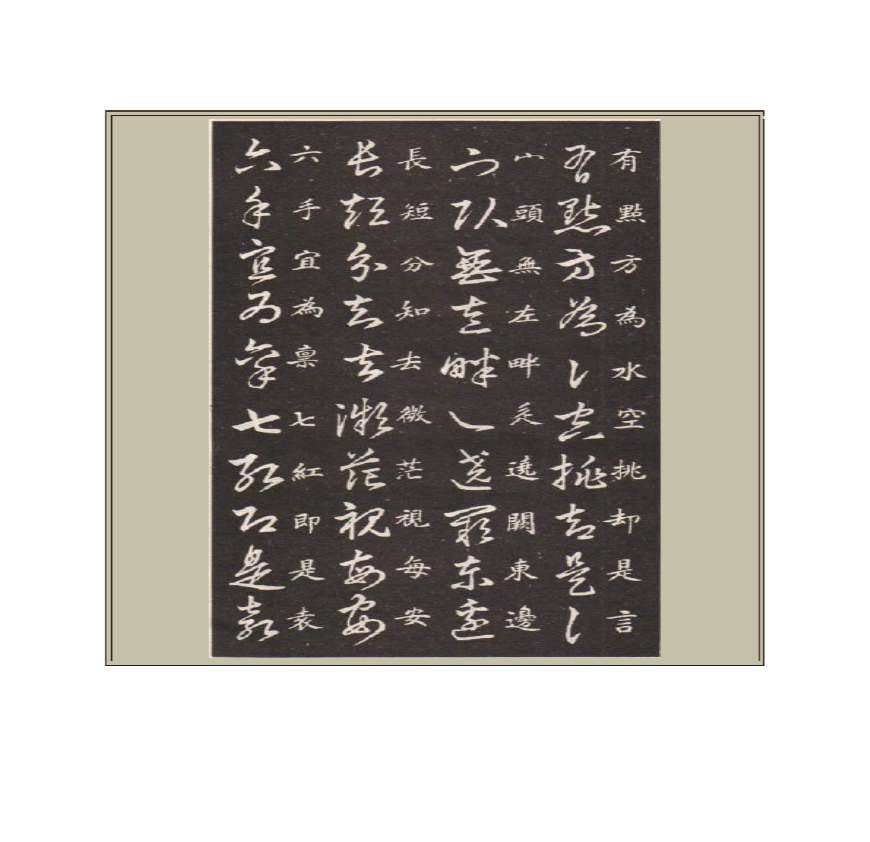 有點方為水空挑却是言
有點方為水空挑却是言
山頭無左畔辵遶闕東邊
山頭無左畔辵遶闕東邊
長短分知去微茫視每安
長短分知去微茫視每安
六手宜為稟七紅即是袁
六手宜為稟七紅即是袁